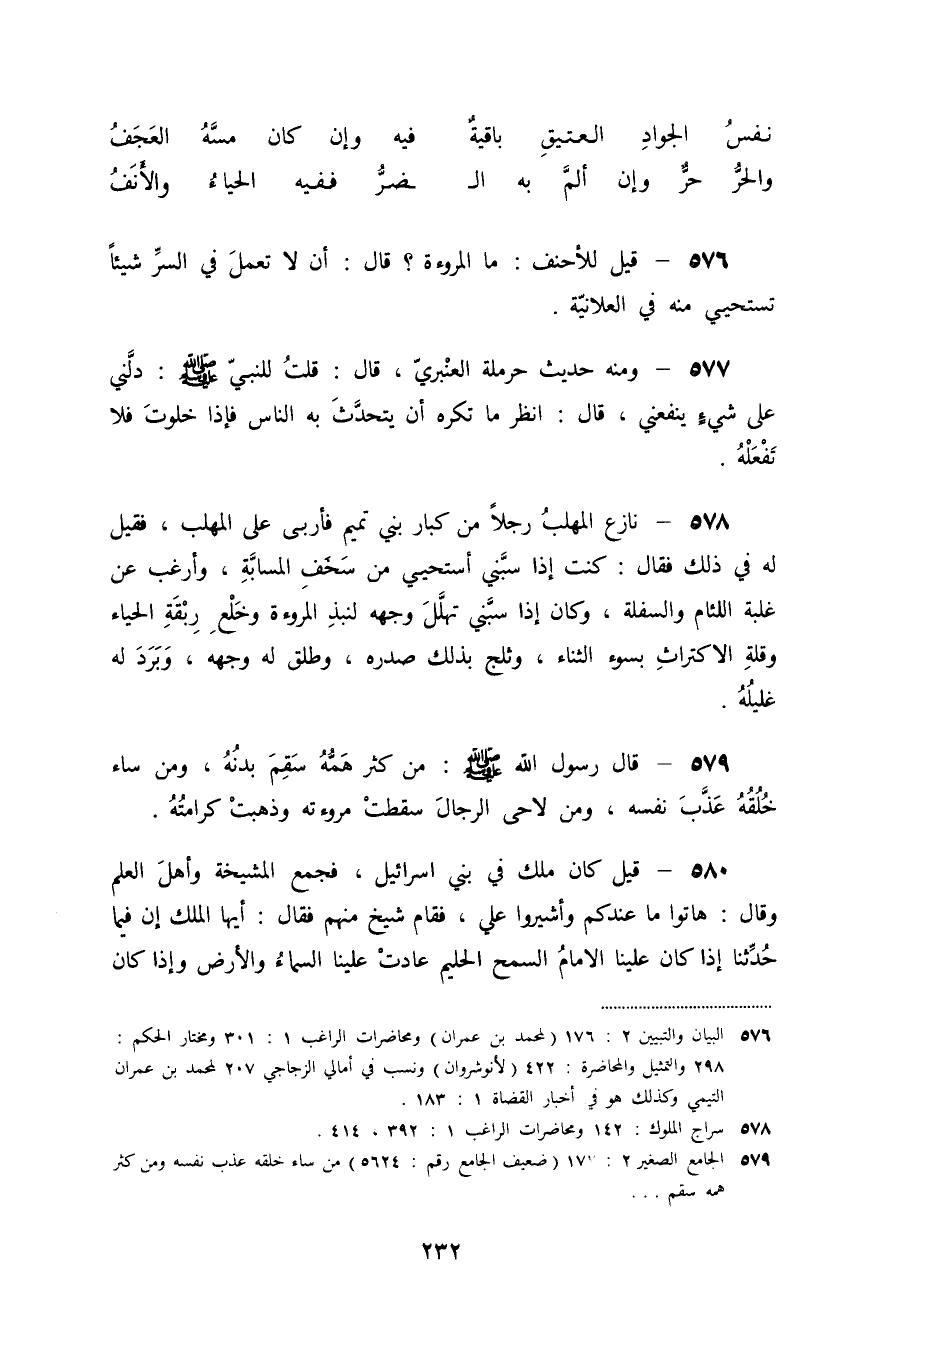 نفسُ الجوادِ العتيقِ باقيةٌ فيه وإن كان مسَّهُ العَجَفُ
والحرُّ حرٌّ وإن ألمَّ به الـ ـضرُّ ففيه الحياءُ والأَنَفُ
٥٧٦ – قيل للأحنف : ما المروءة ؟ قال : أن لا تعملَ في السرِّ شيئاً
تستحيي منه في العلانيّة .
٥٧٧ – ومنه حديث حرملة العنْبريّ ، قال : قلتُ للنبيّ ﷺ : دلَّني
على شيءٍ ينفعني ، قال : انظر ما تكره أن يتحدَّثَ به الناس فإذا خلوتَ فلا
تَفْعَلْهُ .
٥٧٨ – نازع المهلبُ رجلاً من كبار بني تميم فأربى على المهلب ، فقيل
له في ذلك فقال : كنت إذا سبَّني أستحيي من سَخَفِ المسابَّةِ ، وأرغب عن
غلبة اللئام والسفلة ، وكان إذا سبَّني تهلَّلَ وجهه لنبذِ المروءة وخَلْعِ رِبْقَةِ الحياء
وقلةِ الاكتراثِ بسوء الثناء ، وثلج بذلك صدره ، وطلق له وجهه ، وَبَرَدَ له
غليلُهُ .
٥٧٩ – قال رسول الله ﷺ : من كثر هَمُّهُ سَقِمَ بدنُهُ ، ومن ساء
خُلُقُهُ عَذَّبَ نفسه ، ومن لاحى الرجالَ سقطتْ مروءته وذهبتْ كرامتُهُ .
٥٨٠ – قيل كان ملك في بني اسرائيل ، فجمع المشيخة وأهلَ العلم
وقال : هاتوا ما عندكم وأشيروا علي ، فقام شيخ منهم فقال : أيها الملك إن فيما
حُدِّثنا إذا كان علينا الامامُ السمح الحليم عادتْ علينا السماءُ والأرض وإذا كان
٥٧٦ البيان والتبيين ٢ : ١٧٦ (لمحمد بن عمران) ومحاضرات الراغب ١ : ٣٠١ ومختار الحكم :
٢٩٨ والتمثيل والمحاضرة : ٤٢٢ (لأنوشروان) ونسب في أمالي الزجاجي ٢٠٧ لمحمد بن عمران
التيمي وكذلك هو في أخبار القضاة ١ : ١٨٣ .
٥٧٨ سراج الملوك : ١٤٢ ومحاضرات الراغب ١ : ٣٩٢ ، ٤١٤ .
٥٧٩ الجامع الصغير ٢ : (ضعيف الجامع رقم : ٥٦٢٤) من ساء خلقه عذب نفسه ومن كثر
همه سقم ...
٢٣٢